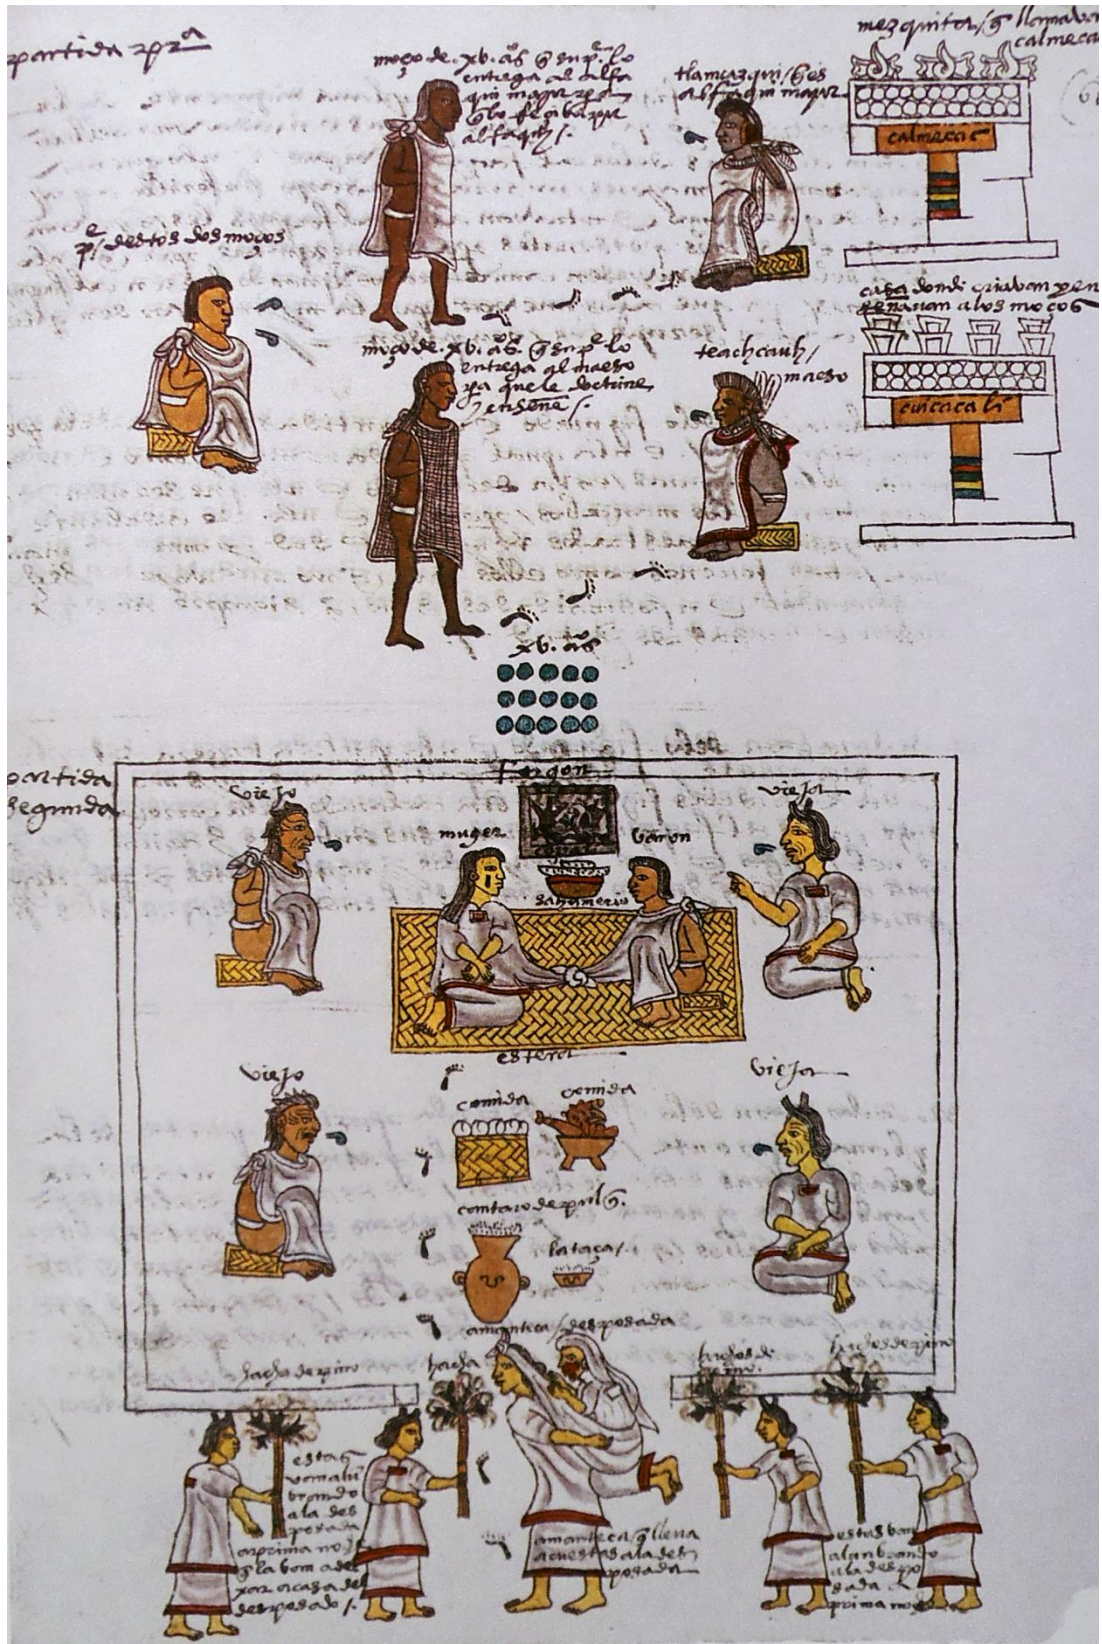 partida pr̃a
moço de .xv. aºs q̃ su pe lo
entrega al alfa
qui mayor pa
q̃ lo resciba por
alfaqui /.
tlamazqui / q̃ es
alfaqui mayor
mezquita / q̃ llamavan
calmecac
calmecac
pe destos dos moços
moço de .xv. aºs q̃ su pe lo
entrega al maeso
pa que le doctrine
y enseñe /.
teachcauh /
maeso
casa donde criavan y en
señavan a los moços
cuicacali
xv. aºs
partida
segunda
fogon
viejo
vieja
muger
varon
sahumerio
estera
viejo
vieja
comida
comida
cantaro de pulq̃.
la taça /.
amanteca / desposada
hacho de pino
hacha
hachos de
pino.
hachos de pino
estas
van alũ
brando
a la des
posada
a prima noche
q̃ la van a de
xar a casa del
desposado /.
amanteca q̃ lleva
a cuestas a la des
posada
estas van
alunbrando
a la despo
sada a
prima noche